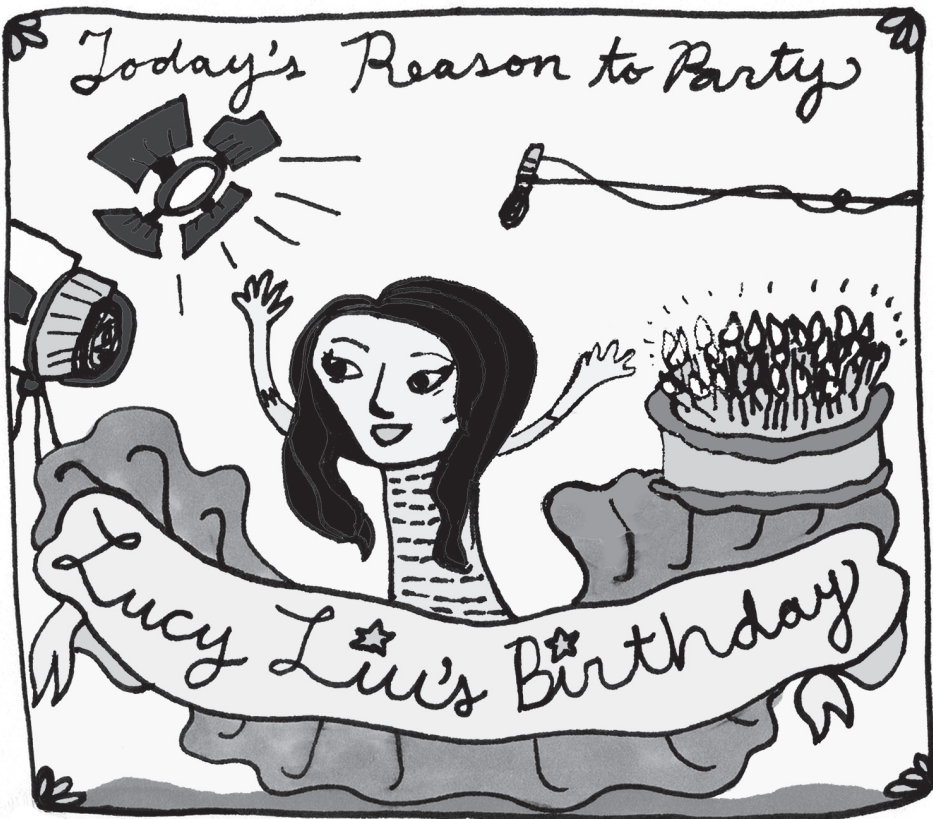 Today's Reason to Party
Lucy Liu's Birthday